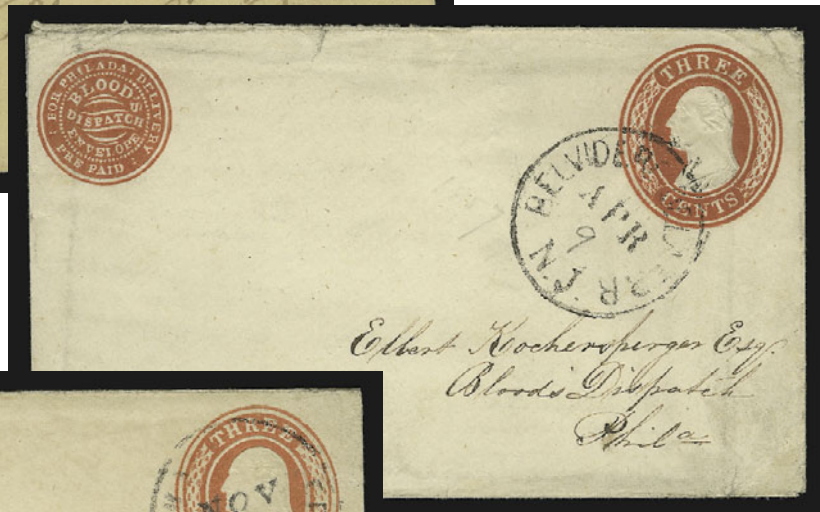 FOR PHILADA. DELIVERY
BLOOD'S
DISPATCH
ENVELOPE
PRE PAID
THREE
CENTS
BELVIDERE
APR
9
N.J.
Elbert Kochersperger Esq.
Blood's Dispatch
Phila
THREE
NOV